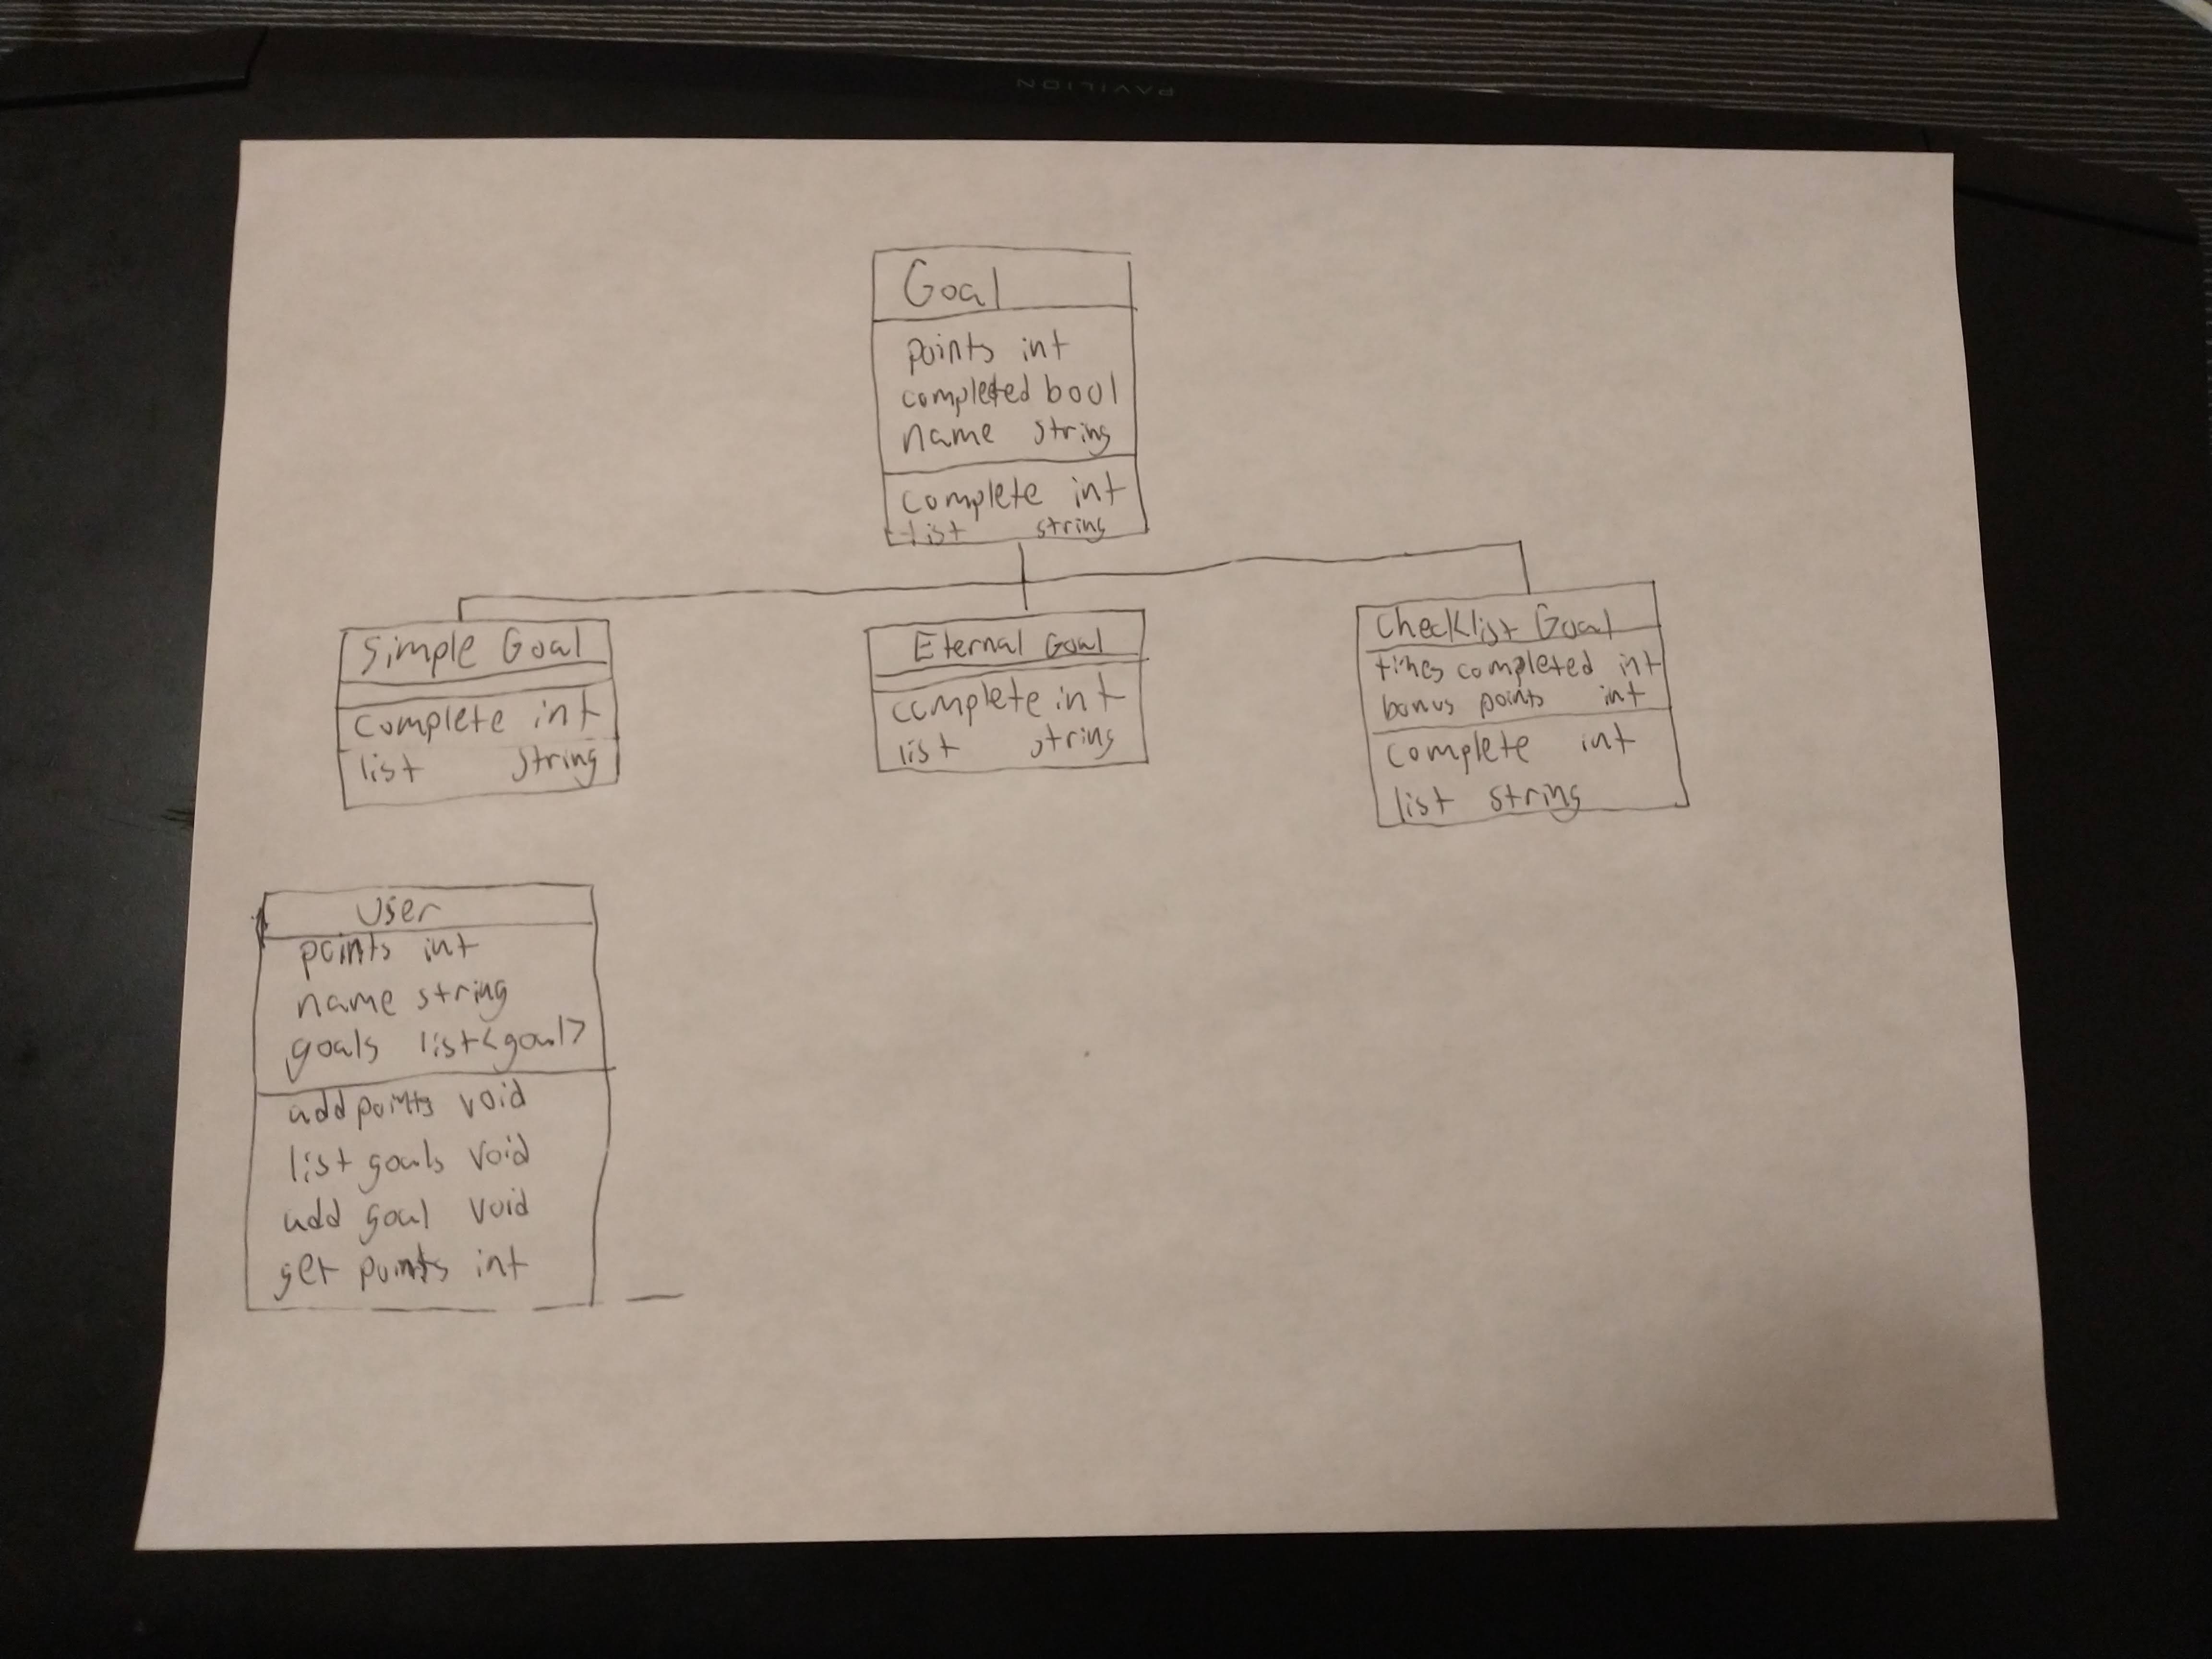 PAVILION
Goal
points int
completed bool
name string
complete int
list string
Simple Goal
complete int
list string
Eternal Goal
complete int
list string
Checklist Goal
times completed int
bonus points int
complete int
list string
User
points int
name string
goals list<goal>
add points void
list goals void
add goal void
get points int